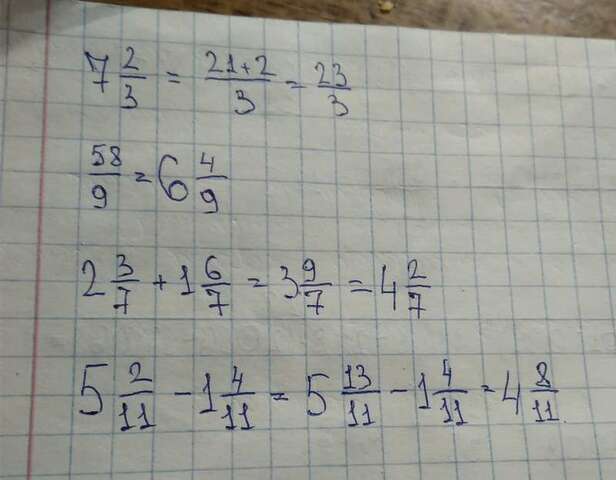 7 2/3 = 21+2/3 = 23/3
58/9 = 6 4/9
2 3/7 + 1 6/7 = 3 9/7 = 4 2/7
5 2/11 - 1 4/11 = 5 13/11 - 1 4/11 = 4 8/11